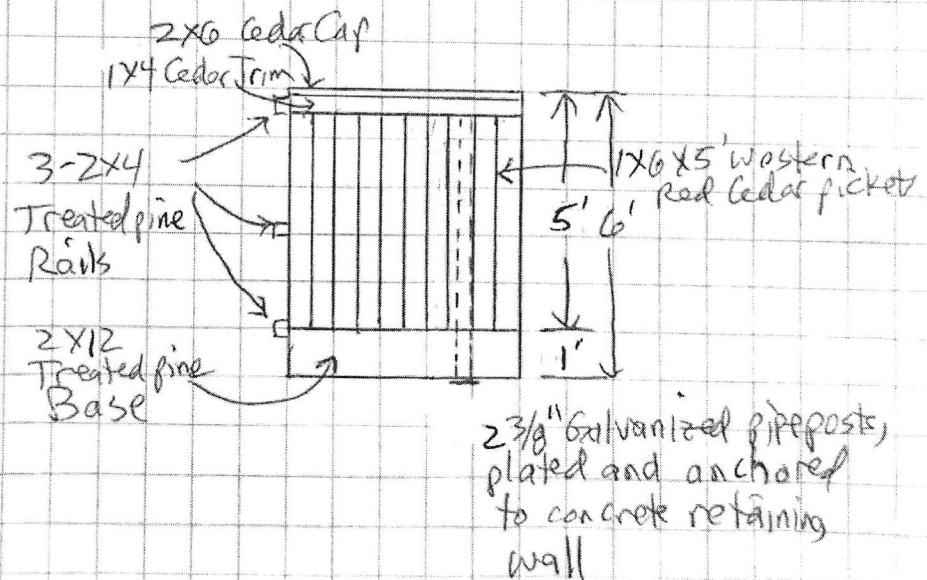 2X6 Cedar Cap
1X4 Cedar Trim
3-2X4
Treated pine
Rails
2X12
Treated pine
Base
1X6X5' Western
Red Cedar pickets
5' 6'
1'
2 3/8" Galvanized pipe posts,
plated and anchored
to concrete retaining
wall